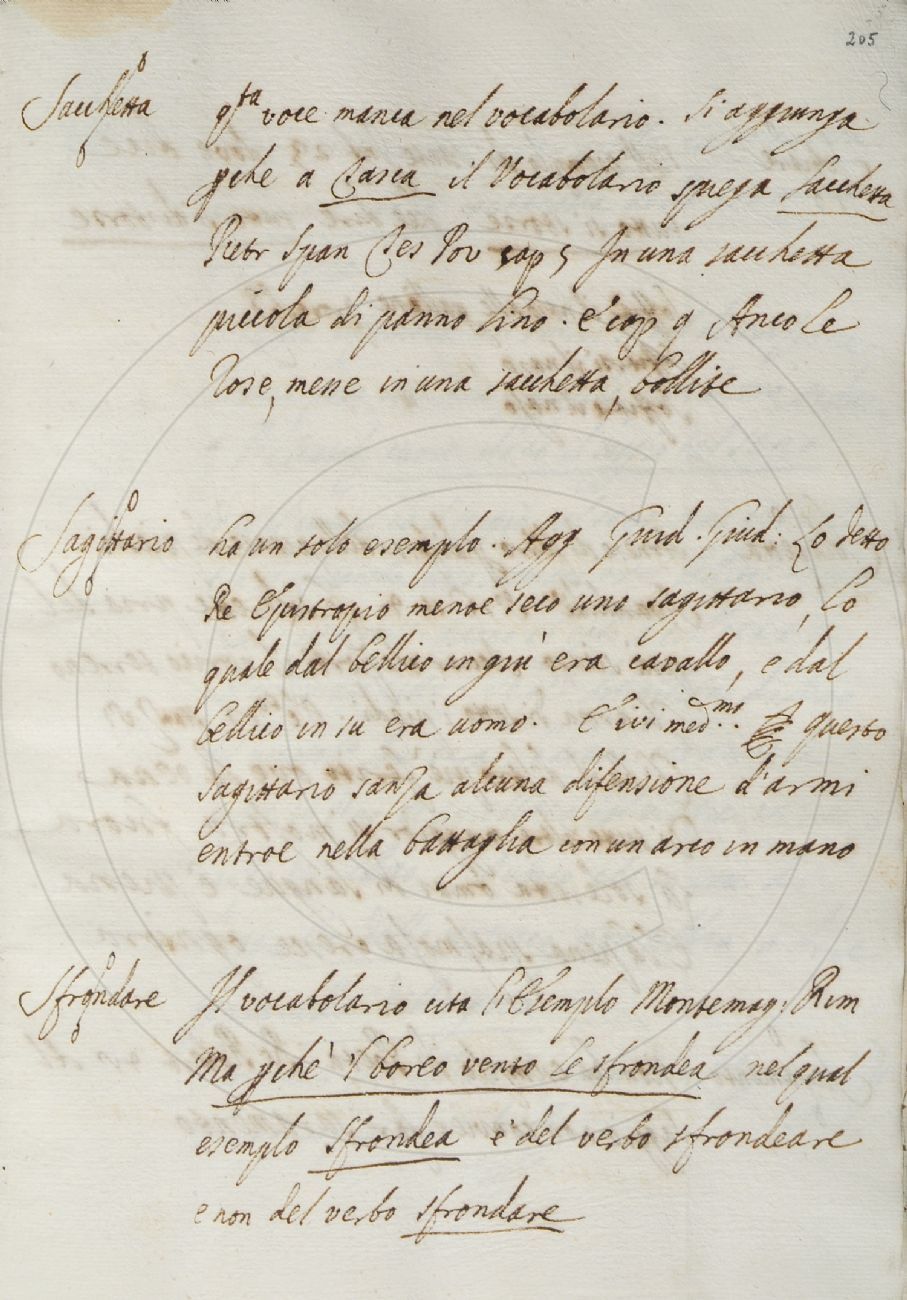 205
Sacchetta q.ta voce manca nel vocabolario. Si aggiunga
pche a Tasca il Vocabolario spiega Sacchetta
Pietr Span Tes Pov cap 5 In una sacchetta
piccola di panno lino. E cap 9 Anco le
Rose, messe in una sacchetta, bollite
Sagittario ha un solo esemplo. Agg Guid. Giud: Lo detto
Re Epistropio menoe seco uno sagittario, lo
quale dal bellico in giù era cavallo, e dal
bellico in su era uomo. E ivi med.mo questo
Sagittario sanza alcuna difensione d'armi
entroe nella battaglia con un arco in mano
Sfrondare Il vocabolario cita l'Esemplo Montemag. Rim
Ma pchè 'l boreo vento le sfrondea nel qual
esemplo sfrondea e' del verbo sfrondeare
e non del verbo sfrondare